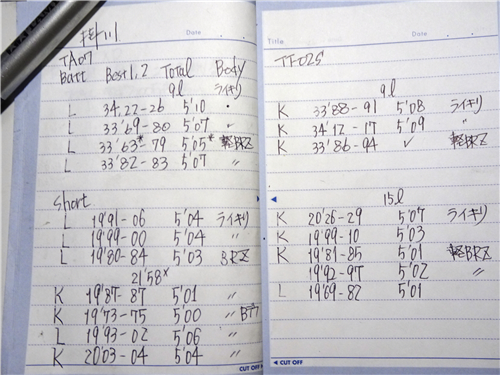 Date
TA07
Batt Best 1,2 Total Body
9l ライキリ
L 34,22-26 5'10 〃
L 33'69-80 5'07 〃
L 33'63*-79 5'05* 軽BRZ
L 33'82-83 5'07 〃
Short
L 19'91-06 5'04 ライキリ
L 19'99-00 5'04 〃
L 19'80-84 5'03 BRZ
21'58*
K 19'87-87 5'01 〃
K 19'73-75 5'00 〃
L 19'93-02 5'06 〃
K 20'03-04 5'04 〃
CUT OFF
Title Date
TF02S
9l
K 33'88-91 5'08 ライキリ
K 34'12-17 5'09 〃
K 33'86-94 ✓ 軽BRZ
15l
K 20'26-29 5'07 ライキリ
K 19'99-10 5'03
K 19'81-85 5'01 軽BRZ
19'92-97 5'02 〃
L 19'69-82 5'01
◀ CUT OFF